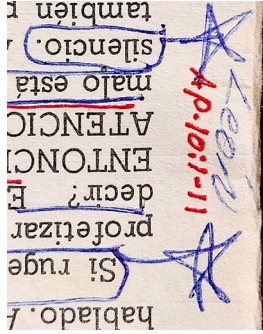 hablado. A
Si ruge
profetizar
decir? E
ENTONC
ATENCIO
malo está
silencio.
también p
Ap.10:1-11
León